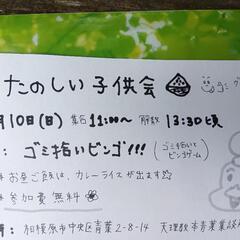 たのしい子供会
月10日(日) 集合 11:00〜 解散 13:30頃
: ゴミ拾いビンゴ!!! (ゴミ拾いと
ビンゴゲーム)
※お昼ご飯は、カレーライスが出ます☆
※参加費無料
: 相模原市中央区青葉2-8-14 天理教本青葉